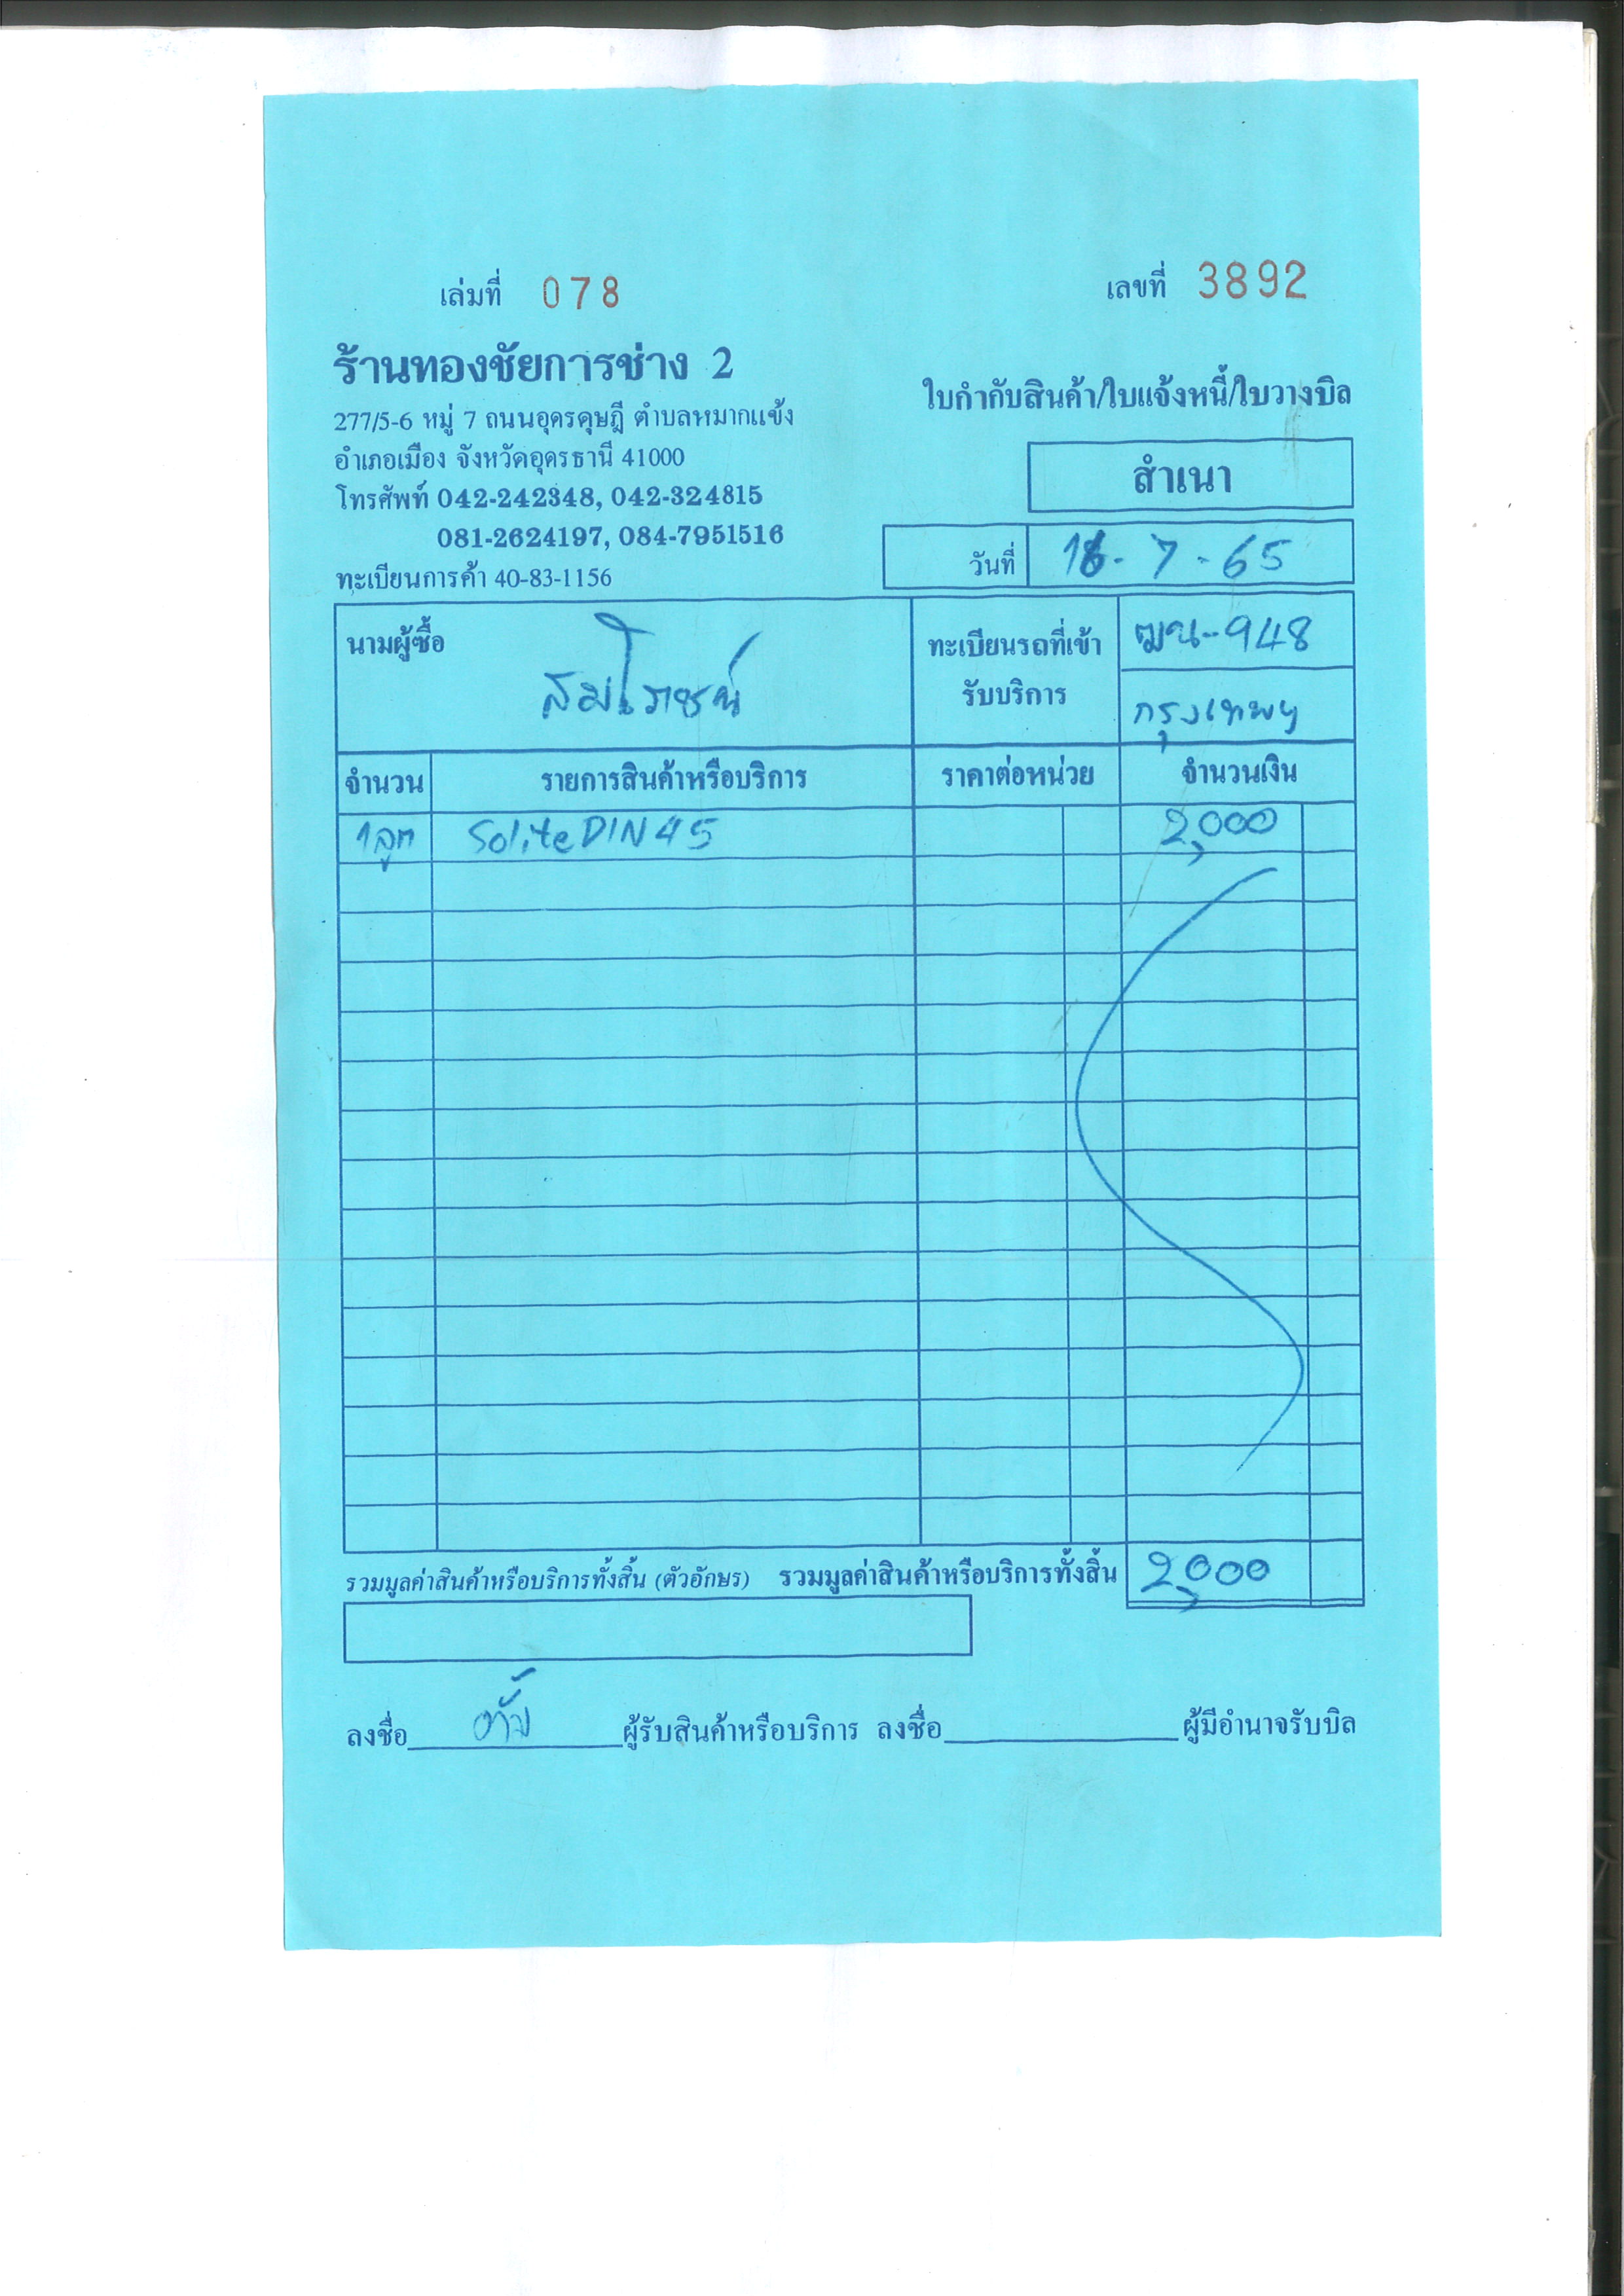 เล่มที่ 078
เลขที่ 3892
ร้านทองชัยการช่าง 2
277/5-6 หมู่ 7 ถนนอุดรดุษฎี ตำบลหมากแข้ง
อำเภอเมือง จังหวัดอุดรธานี 41000
โทรศัพท์ 042-242348, 042-324815
081-2624197, 084-7951516
ทะเบียนการค้า 40-83-1156
ใบกำกับสินค้า/ใบแจ้งหนี้/ใบวางบิล
สำเนา
วันที่ -7-65
นามผู้ซื้อ
ทะเบียนรถที่เข้า
รับบริการ
ฒน-948
กรุงเทพฯ
จำนวน รายการสินค้าหรือบริการ ราคาต่อหน่วย จำนวนเงิน
1ลูก Solite DIN 45 2,000
รวมมูลค่าสินค้าหรือบริการทั้งสิ้น (ตัวอักษร) รวมมูลค่าสินค้าหรือบริการทั้งสิ้น 2,000
ลงชื่อ ผู้รับสินค้าหรือบริการ ลงชื่อ ผู้มีอำนาจรับบิล